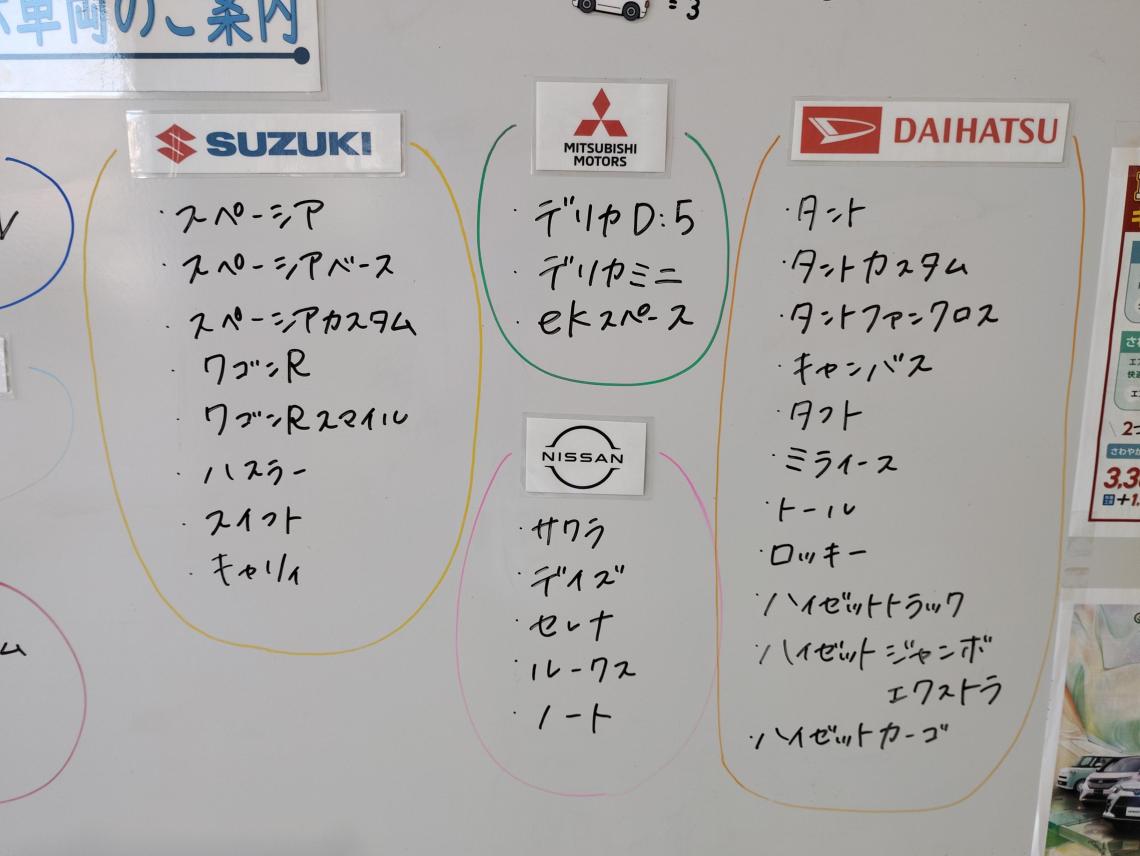 車両のご案内
= 3
SUZUKI
・スペーシア
・スペーシアベース
・スペーシアカスタム
・ワゴンR
・ワゴンRスマイル
・ハスラー
・スイフト
・キャリィ
MITSUBISHI
MOTORS
・デリカD:5
・デリカミニ
・ekスペース
NISSAN
・サクラ
・デイズ
・セレナ
・ルークス
・ノート
DAIHATSU
・タント
・タントカスタム
・タントファンクロス
・キャンバス
・タフト
・ミライース
・トール
・ロッキー
・ハイゼットトラック
・ハイゼットジャンボ
エクストラ
・ハイゼットカーゴ
ム
さわやか
3,3